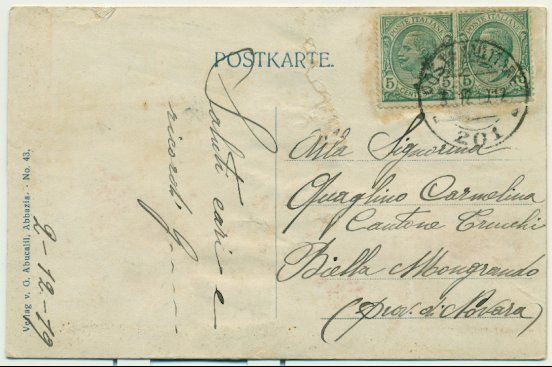 POSTKARTE.
POSTE ITALIANE
POSTE ITALIANE
5
5 5
201
Saluti cari e
ricordi
2-12-19
Verlag v. G. Abucaill, Abbazia. - No. 43.
Alla Signorina
Quaglino Carmelina
Cantone
Biella Mongrando
(prov. di Novara)